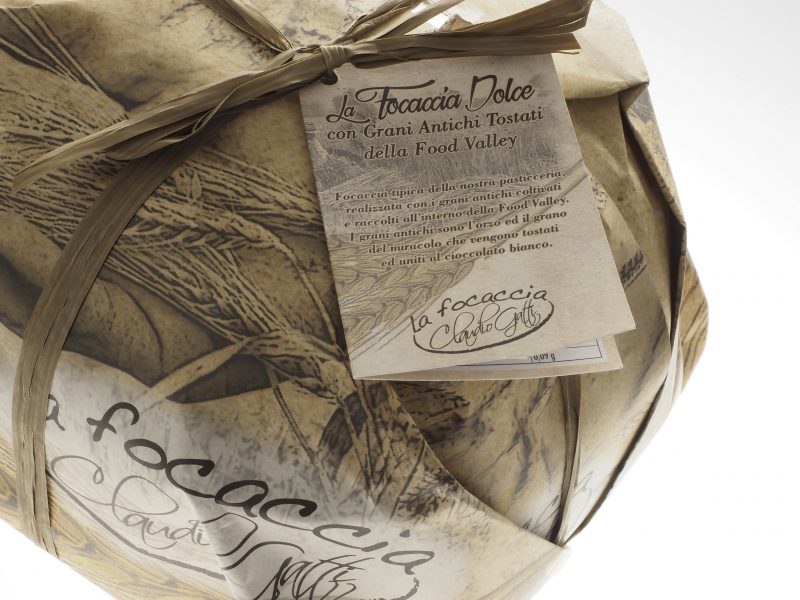 La Focaccia Dolce
con Grani Antichi Tostati
della Food Valley
Focaccia tipica della nostra pasticceria,
realizzata con i grani antichi coltivati
e raccolti all'interno della Food Valley.
I grani antichi sono l'orzo ed il grano
del miracolo che vengono tostati
ed uniti al cioccolato bianco.
La focaccia
Claudio Gatti
a focaccia
Claudio Gatti